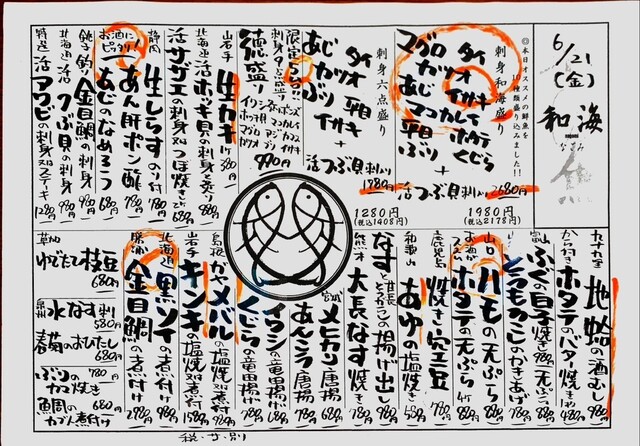 6/21
(金)
和海
なごみ
◎本日オススメの鮮魚を
種類盛り込みました!!
刺身和海盛り
タイ カツオ イサキ
マグロ カツオ タイ
あじ マコカレイ ホタテ
平目 ぶり くじら
+活つぶ貝刺入り
2680円
1980円
(税込2178円)
刺身六点盛り
タイ 平目 イサキ
あじ カツオ ぶり
+活つぶ貝刺入り
1980円
1280円
(税込1408円)
限定
刺身9点盛り
徳盛り
990円
岩手 生カキ 1ヶ 580円
北海道 活ホッキ貝の刺身 880円
活サザエの刺身又はつぼ焼き 680円
静岡 生しらす 780円
お酒にピッタリ あん肝ポン酢 780円
一品 あじのなめろう 780円
銚子釣り 金目鯛の刺身 980円
北海道 活つぶ貝の刺身 980円
特選 活アワビの刺身又はステーキ 1280円
九十九里 地蛤の酒むし 980円
からつき ホタテのバター焼き 1ヶ 480円
ふぐの白子焼き 980円 天ぷら
とうもろこしのかきあげ 680円
ホタテの天ぷら
山口 ハモの天ぷら
鹿児島 焼き空豆
和歌山 あゆの塩焼き
なすと甘長とうがらしの揚げ出し 680円
熊本 大長なす焼き 780円
宮城 メヒカリ唐揚げ
あんこう唐揚げ
イワシの竜田揚げ 680円
くじらの竜田揚げ
島根 ガヤメバルの塩焼又は煮付 980円
岩手 キンキの塩焼又は煮付 1580円
北海道 黒ソイの煮付け 980円
勝浦 金目鯛の煮付け 2980円
草加 ゆでたて枝豆 680円
泉州 水なす刺 580円
春菊のおひたし 680円
ぶりのカマ焼き 780円
鯛のカブト煮付け 680円
税・サ・別